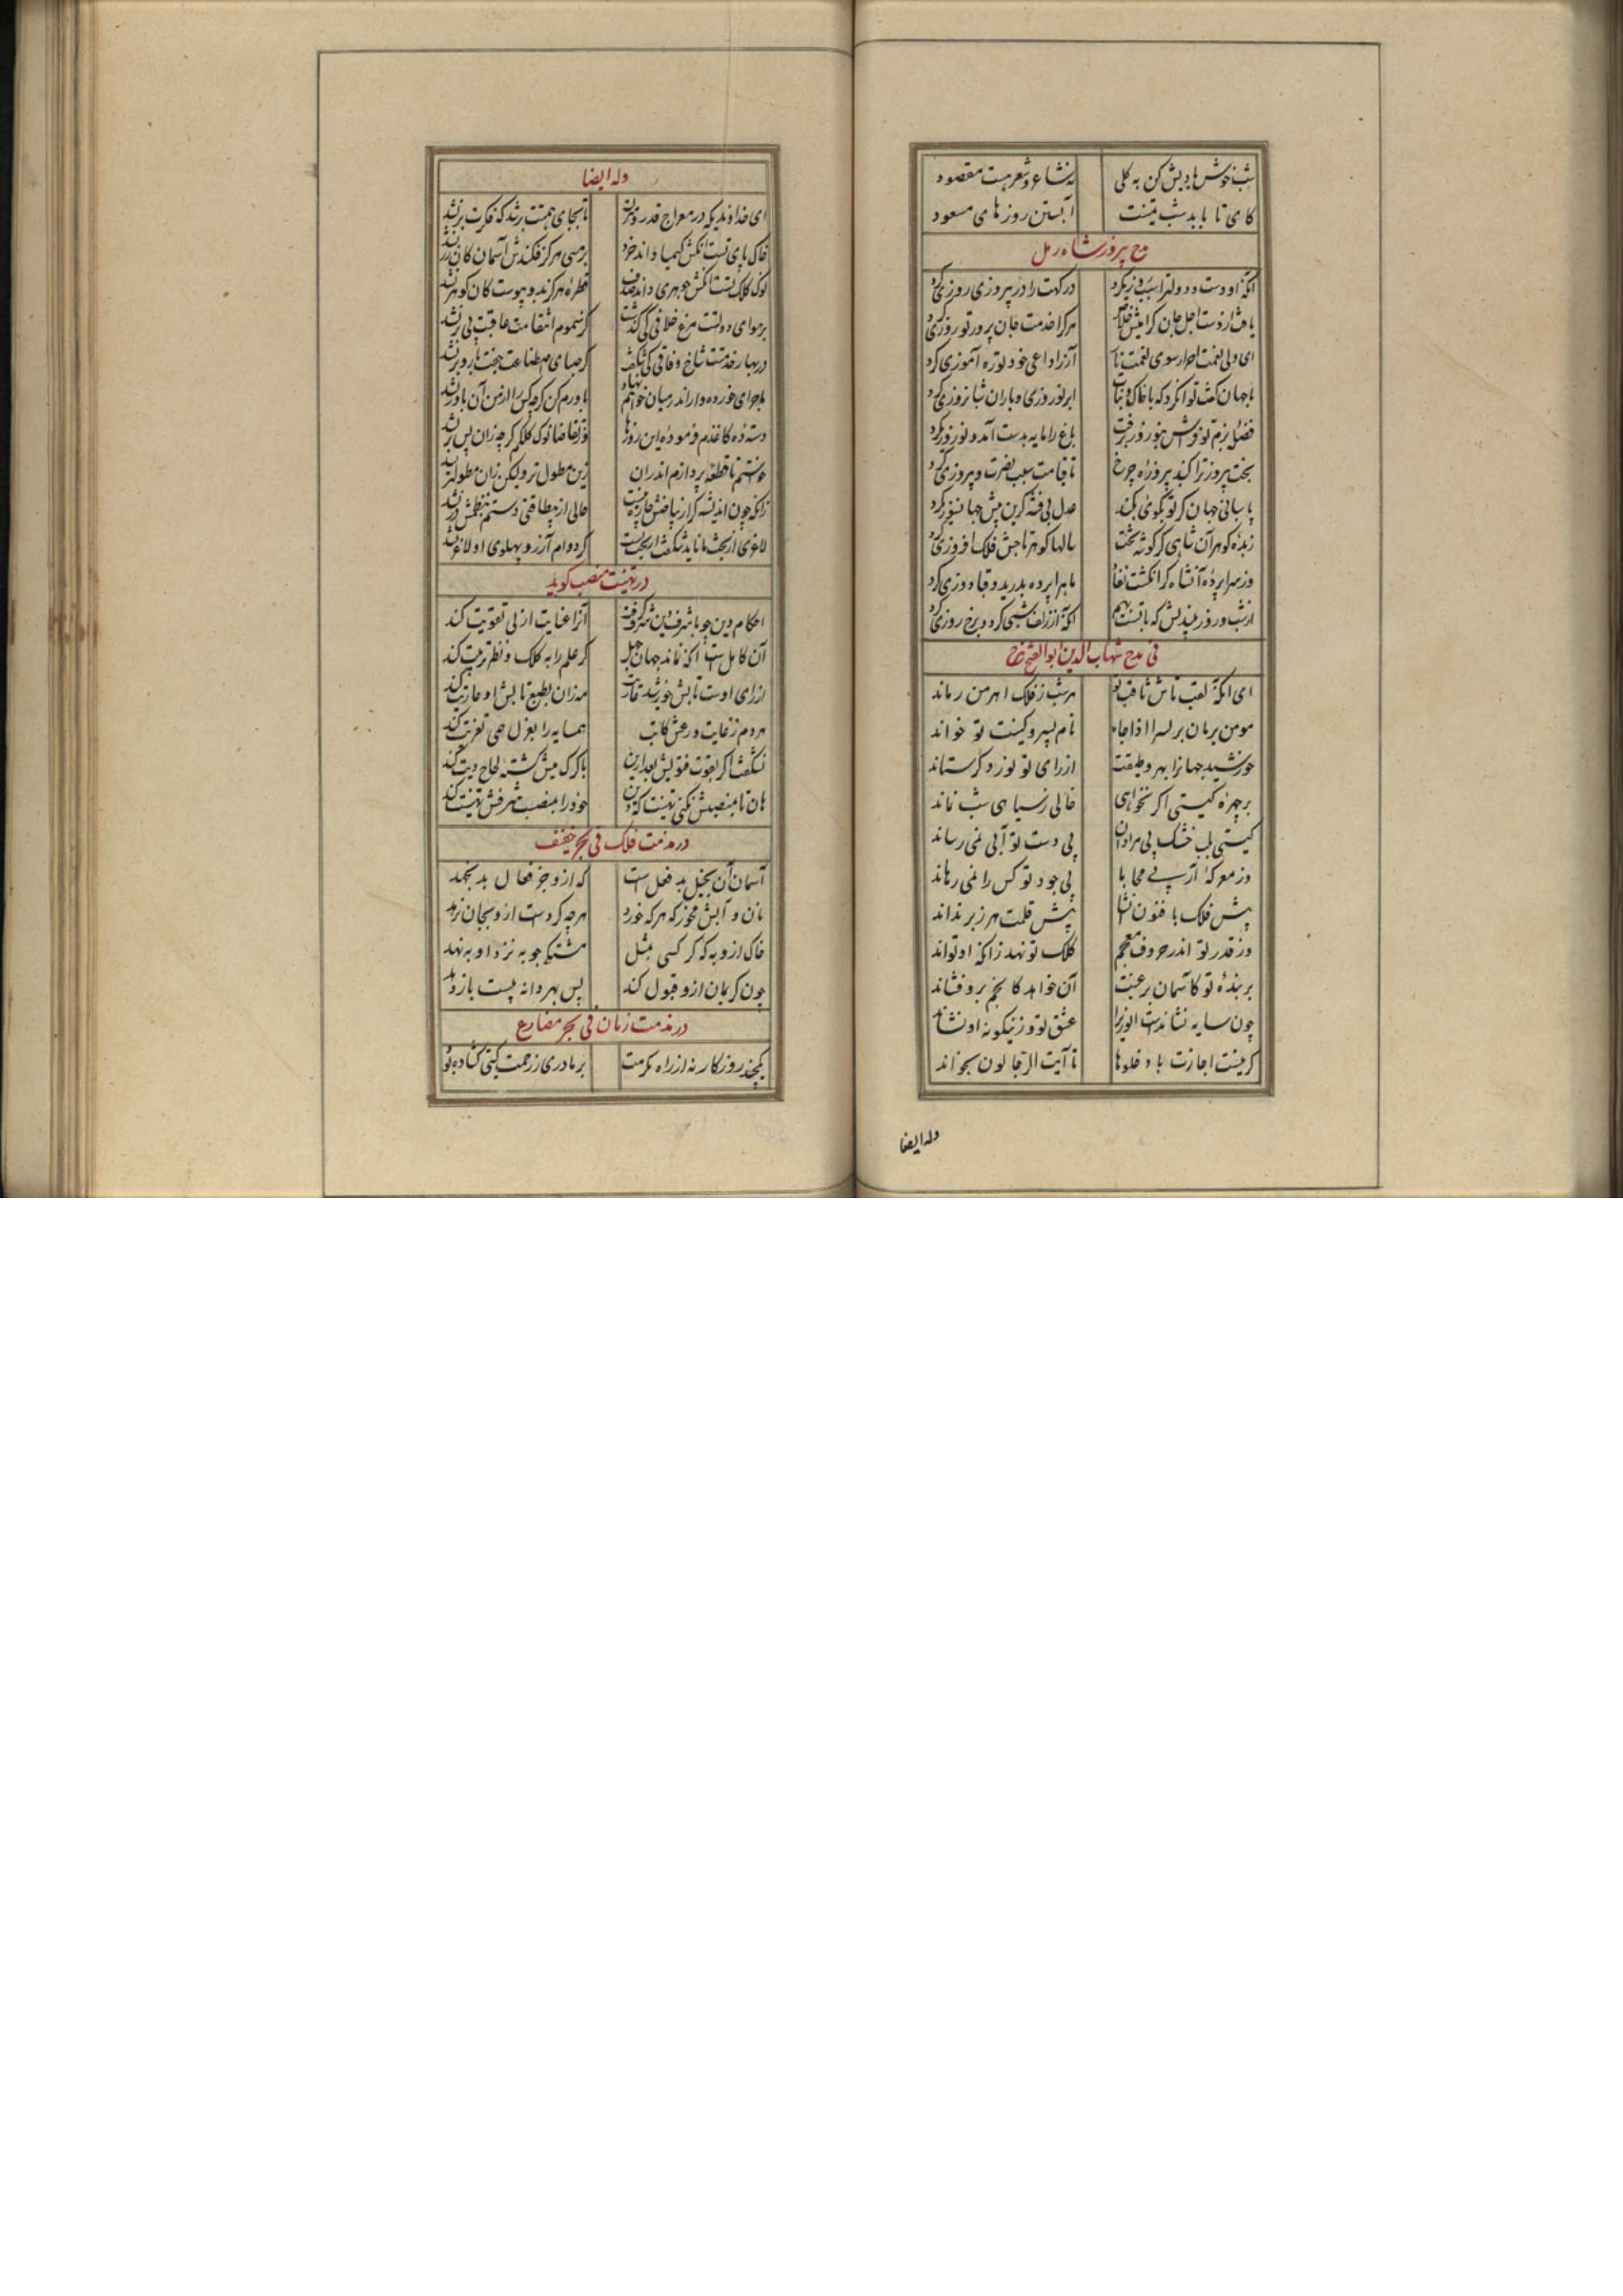 شب خوش باد پیش کن به کلی نشاء و شعر هست مقصود
کای تا باید شب تمنیت آبستن روزهای مسعود
مدح پیروزشاه رمل
انکه او دست و دولترا سبب روزی کرد درکهت را در پیروزی روزی کرد
هرکرا خدمت جان پرور تو روزی کرد
ای ولی نعمت احرار سوی نعمت ناز آزرا داعی خود تو ره آموزی کرد
با جهان کف تو انکرد که با خاک و نبات ابر نوروزی و باران شبانروزی کرد
فضلهٔ بزم تو فراش بنوروز برفت باغ را مایه بدست آمد و نوروزی کرد
بخت پیروز ترا کنبد پیروزهٔ چرخ تا قیامت سبب نصرت و پیروزی کرد
پاسبانی جهان کر تو بکوئی بکند عدل بی فتنه کزین پیش جهانسوزی کرد
زبدهٔ کوهر آن شاهی کز کوشهٔ تخت سالها کوهر تاجش فلک افروزی کرد
وز سرا پردهٔ آن شاه کز انکشت نفاذ ماه را پرده بدرید و قبادوزی کرد
از شب و روز میندیش که با تست بهم انکه از زلف شبی کرد و ز رخ روزی کرد
فی مدح شهاب الدین ابوالفتح
ای انکه لقب تاش ثاقب تو هر شب ز فلک اهرمن رماند
مومن بزبان بر پس از اذا جاء نام پسر و کنیت تو خواند
خورشید جهانرا بهر وظیفت از رای تو نور دکر ستاند
بر چهرهٔ کیتی اکر نخواهی خالی ز سیاهی شب نماند
کیتی بلب خشک بی مرادان بی دست تو آبی نمی رساند
در معرکهٔ آز بی محابا بی جود تو کس را نمی رهاند
پیش فلک با فنون انشا پیش قلمت هر ز بر نداند
وز قدر تو اندر حروف معجم کلک تو نهد زانکه او تواند
بر بندهٔ تو کاسمان برغبت آن خواهد کانجم برو فشاند
چون سایه نشاندست انوریرا عشق تو و زینکونه او نشاند
کر نیست اجازت با و خلوها تا آیت الرجالون بخواند
وله ایضا
وله ایضا
ای خداوندیکه در معراج قدر و قربت تا بجای همتت برشد که فکرت برنشد
خاک پای تست انکش کیمیا داند خرد بر مسی هرکز فکندش آسمان کان زر نشد
نوک کلک تست انکش جوهری داند صدف قطرهٔ هرکز بدو پیوست کان کوهر نشد
بر هوای دولتت مرغ خلافی کی کذشت کز سموم انتقامت عاقبت بی پر نشد
در بهار خدمتت شاخ وفاقی کی شکفت کز صبای اصطناعت جفت بار و بر نشد
ماجرای خورده وار اندر میان خواهم نهاد باورم کن کرچه کس را از من آن باور نشد
دستهٔ ده کاغذم فرمودهٔ این روزها وز تقاضا نوک کلکم کرچه زان پس تر نشد
خواستم تا قطعهٔ پردازم اندران زین مطول تر ولیکن زان مطولتر نشد
زانکه چون اندیشه کرد از بیاضش چاره نیست حالی از بی طاقتی دستم بنظمش در نشد
لاغری از بخت ما ناید شکفت ار بخت تست کز دوام آرزو پهلوی او لاغر نشد
در تهنیت منصب کوید
احکام دین چو با شرف دین شرف کرفت آنرا عنایت ازلی تقویت کند
آن کاملست انکه نماند جهان جهل کر علم را به کلک و نظر تربیت کند
از رای اوست تابش خورشید عاریت مه زان بطبع تابش او عاریت کند
هر دم ز غایت ورعش کاتب همسایه را بعزل همی تعزیت کند
نشکفت اکر بقوت فتویش بعد ازین با کرک میش کشته لجاج دیت کند
هان تا بمنصبش نکنی تهنیت که دین خود را بمنصب شرفش تهنیت کند
در مذمت فلک فی بحر خفیف
آسمان آن بخیل بد فعلست که ازو جز فعال بد نجهد
نان و آبش مخور که هرکه خورد هرچه کردست ازو بجان نرهد
خاک ازو به که کر کسی بمثل مشتکی جو به نزد او بنهد
چون کریمان ازو قبول کند پس بهر دانه بیست باز دهد
در مذمت زمان فی بحر مضارع
یکچند روزکار نه از راه مکرمت بر ما دری ز رحمت کیتی کشاده بود